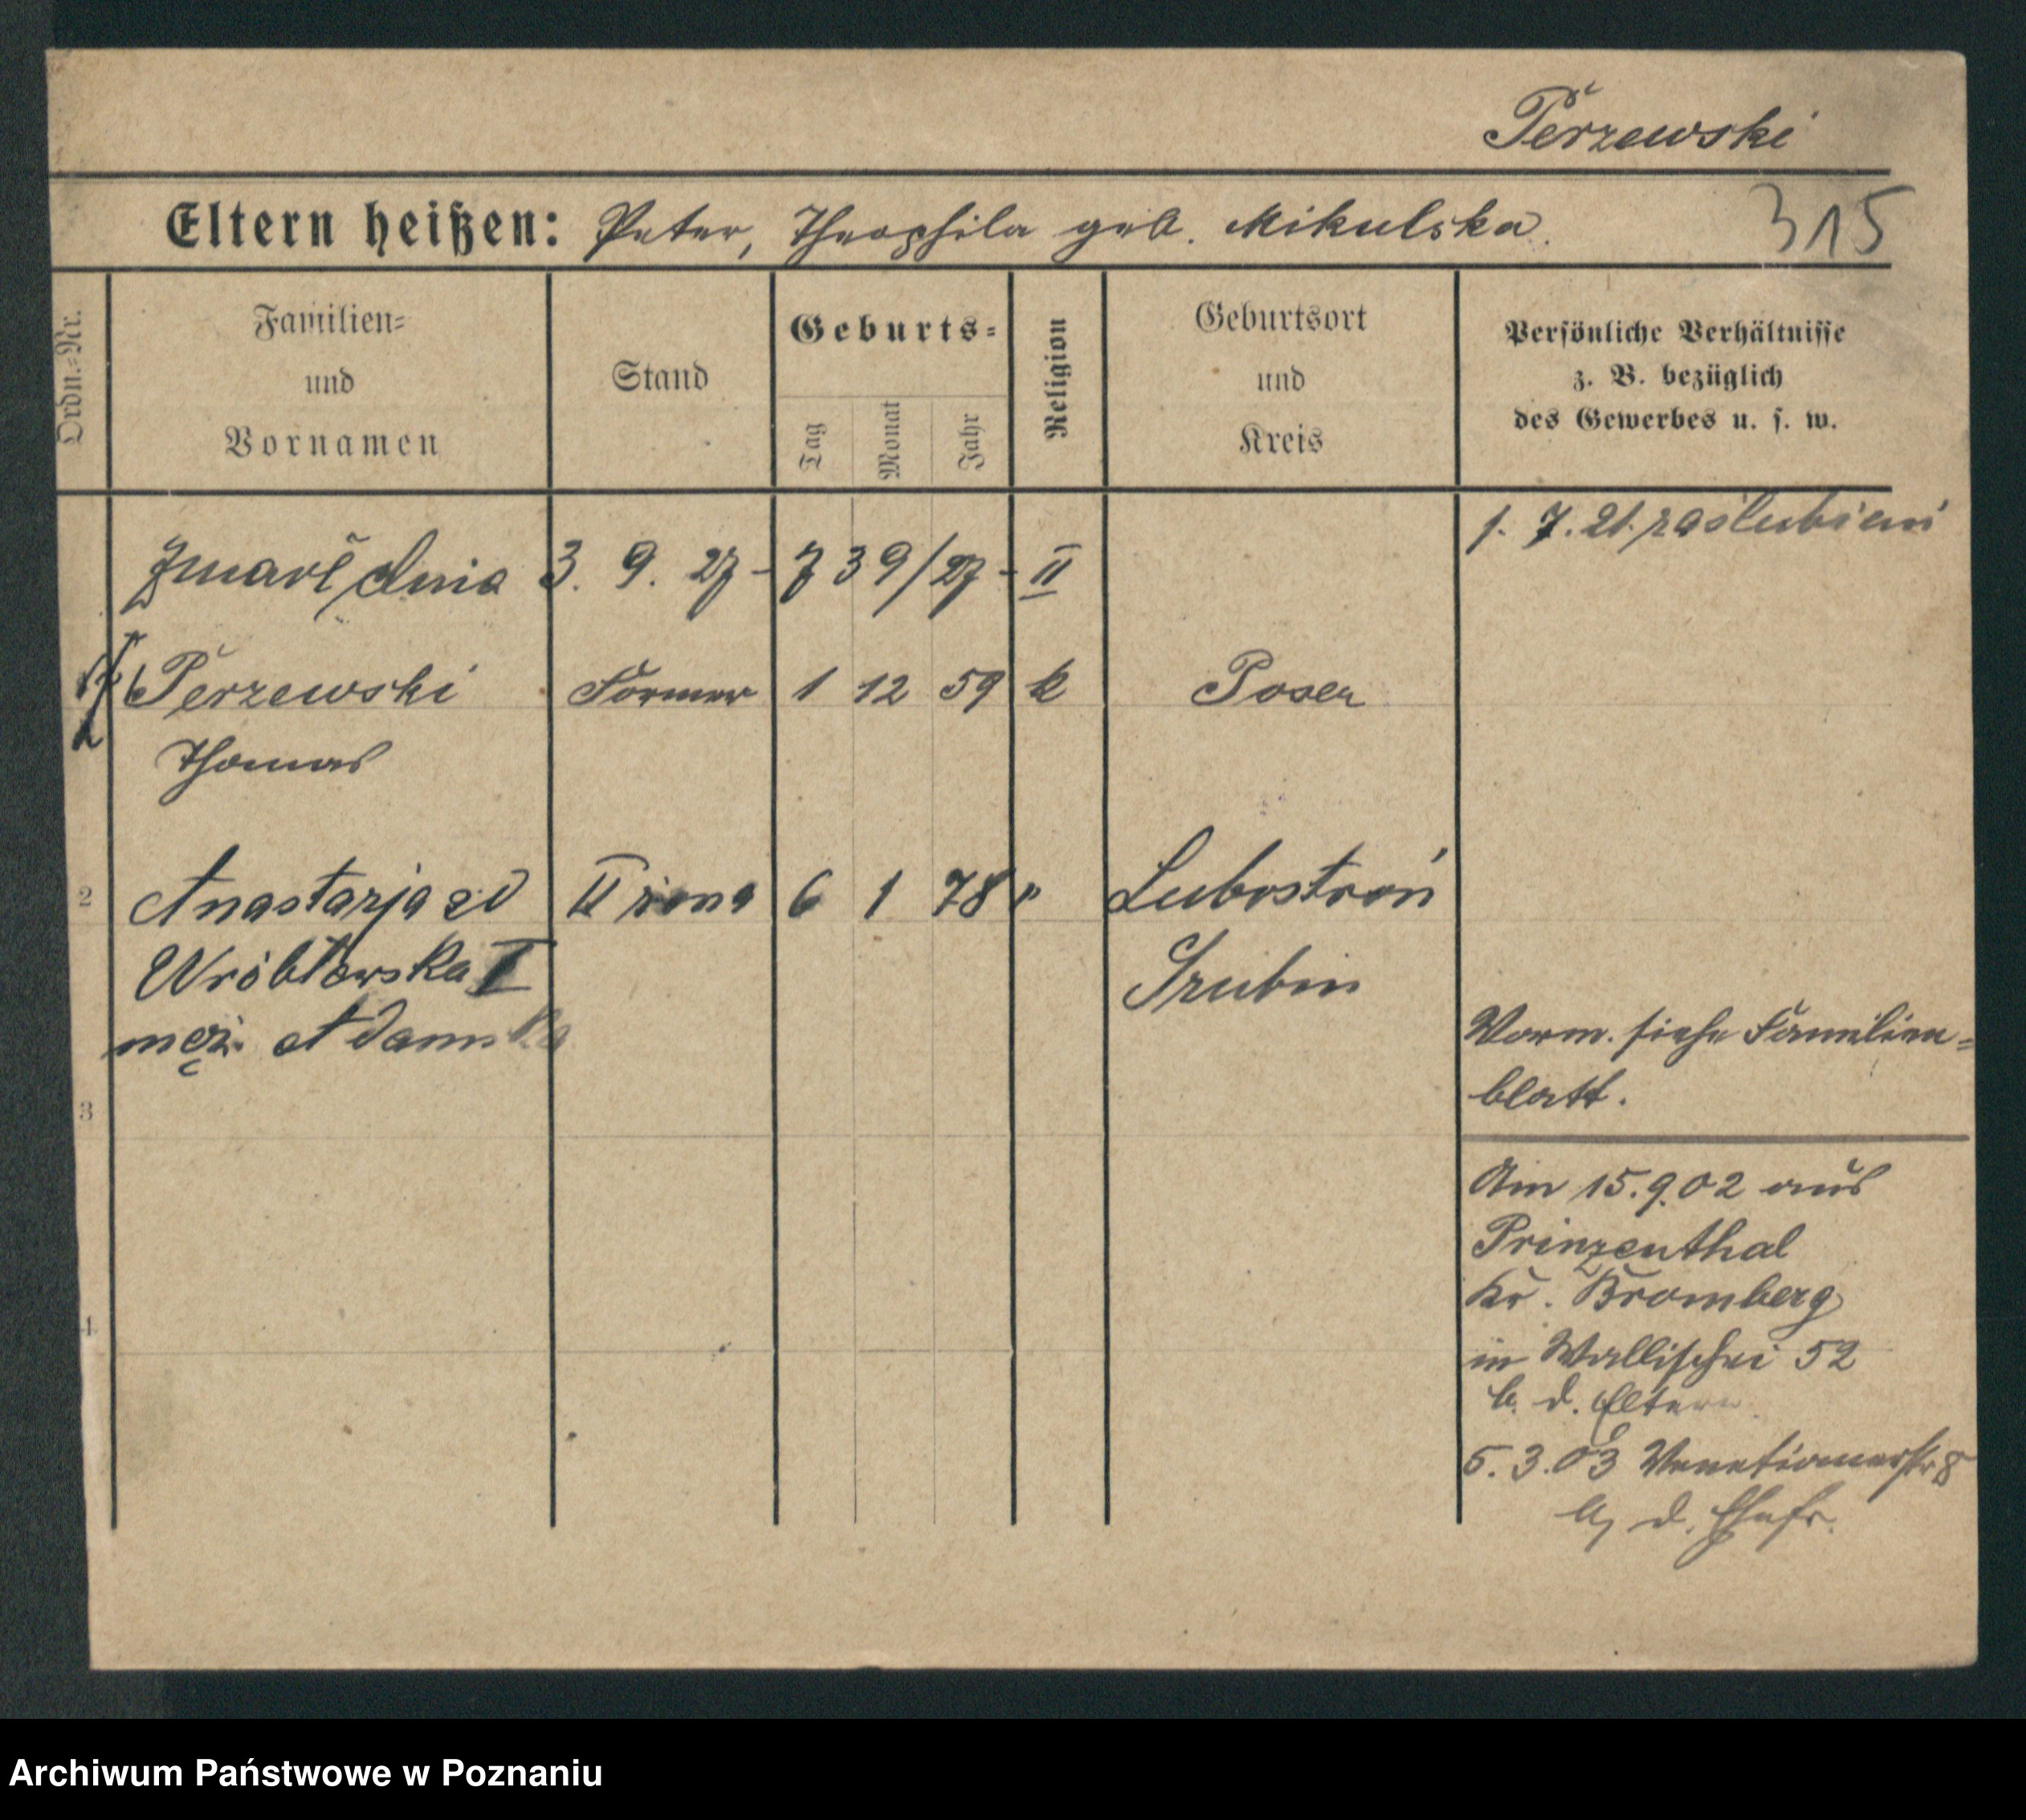 Perzewski
Eltern heißen: Peter, Theophila geb. Mikulska.
315
Ordn.-Nr.
Familien-
und
Vornamen
Stand
Geburts-
Tag
Monat
Jahr
Religion
Geburtsort
und
Kreis
Persönliche Verhältnisse
z. B. bezüglich
des Gewerbes u. s. w.
1. 7. 21. zaślubieni
Zmarł dnia 3. 9. 27 - 739/27 - II
Perzewski Former 1 12 59 k Posen
Thomas
2 Anastazja zd II żona 6 1 78 " Lubostroń
Wróblewska I Szubin
męż. Adamska
Worm. siehe Familien=
blatt.
3
Am 15.9.02 aus
Prinzenthal
Kr. Bromberg
4
in Wallischei 52
b. d. Eltern
5. 3. 03 Venetianerstr 8
b, d. Ehefr.
Archiwum Państwowe w Poznaniu